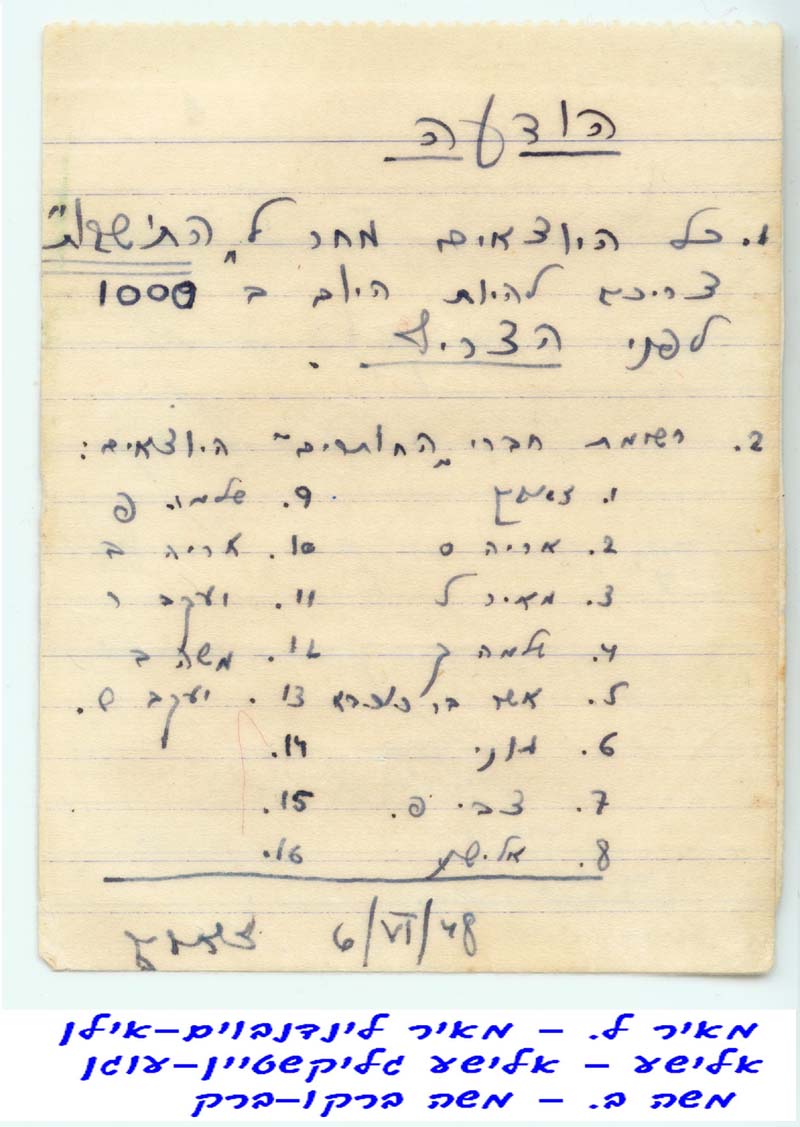 הודעה
1. כל היוצאים מחר ל "התישבות"
צריכים להיות היום ב 1000
לפני הצריף.
2. רשימת חברי "החותרים" היוצאים:
1. 9. שלמה פ
2. אריה ס 10. אריה ב
3. מאיר ל 11. יעקב ר
4. שלמה ק 12. משה ב
5. אשר בר 13. יעקב ש.
6. 14.
7. צבי פ. 15.
8. אלישע 16.
6/VI/48
מאיר ל. – מאיר לינדנבוים–אילן
אלישע – אלישע גליקשטיין–עוגן
משה ב. – משה ברקו–ברק